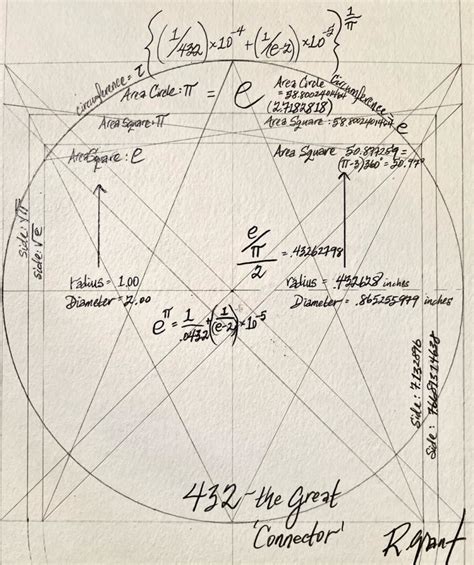 {(1/432)×10⁻⁴ + (1/e-2)×10⁻⁵}^1/π
circumference = τ
Area Circle : π = e
Area Circle
= 58.8002401404
(2.7182818)
circumference = e
Area Square : π
Area Square : 58.8002401404
Area Square : e
Area Square 50.877259 =
(π-3)360° = 50.97°
side: √π
side: √e
e/π/2 = .43262798
radius = 1.00
Diameter = 2.00
radius = .432628 inches
Diameter = .865255979 inches
e^π = 1/.0432 + (1/e-2)×10⁻⁵
side: 7.132896
side: 7.6681314638
432 - the Great
'Connector'
R grant